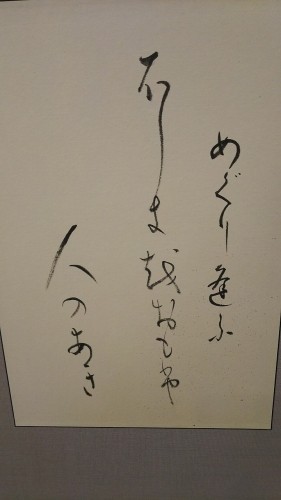 めぐり逢ふ
しま越おもや
人のあさ